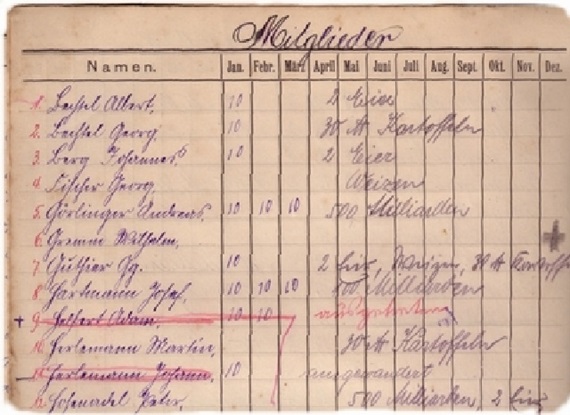 Mitglieder
Namen. Jan. Febr. März April Mai Juni Juli Aug. Sept. Okt. Nov. Dez.
1. Bechtel Albert, 10 2 Eier
2. Bechtel Georg. 10 30 ℔ Kartoffeln
3. Berg Johannes. 10 2 Eier
4. Fischer Georg, Weizen
5. Görlinger Andreas. 10 10 10 500 Milliarden
6. Gremm Wilhelm,
7 Guthier Gg. 10 2 Eier, Weizen, 30 ℔ Kartoffe
8 Hartmann Josef, 10 10 10 500 Milliarden
9 Helfert Adam, 10 10 ausgetreten
10 Herlemann Martin, 30 ℔ Kartoffeln
11 Herlemann Johann, 10 ausgewandert
12 Hosenadel Peter. 500 Milliarden, 2 Eier